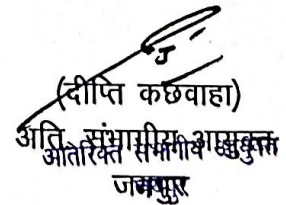 (दीप्ति कछवाहा)
अति. संभागीय आयुक्त
अतिरिक्त संभागीय आयुक्त
जयपुर